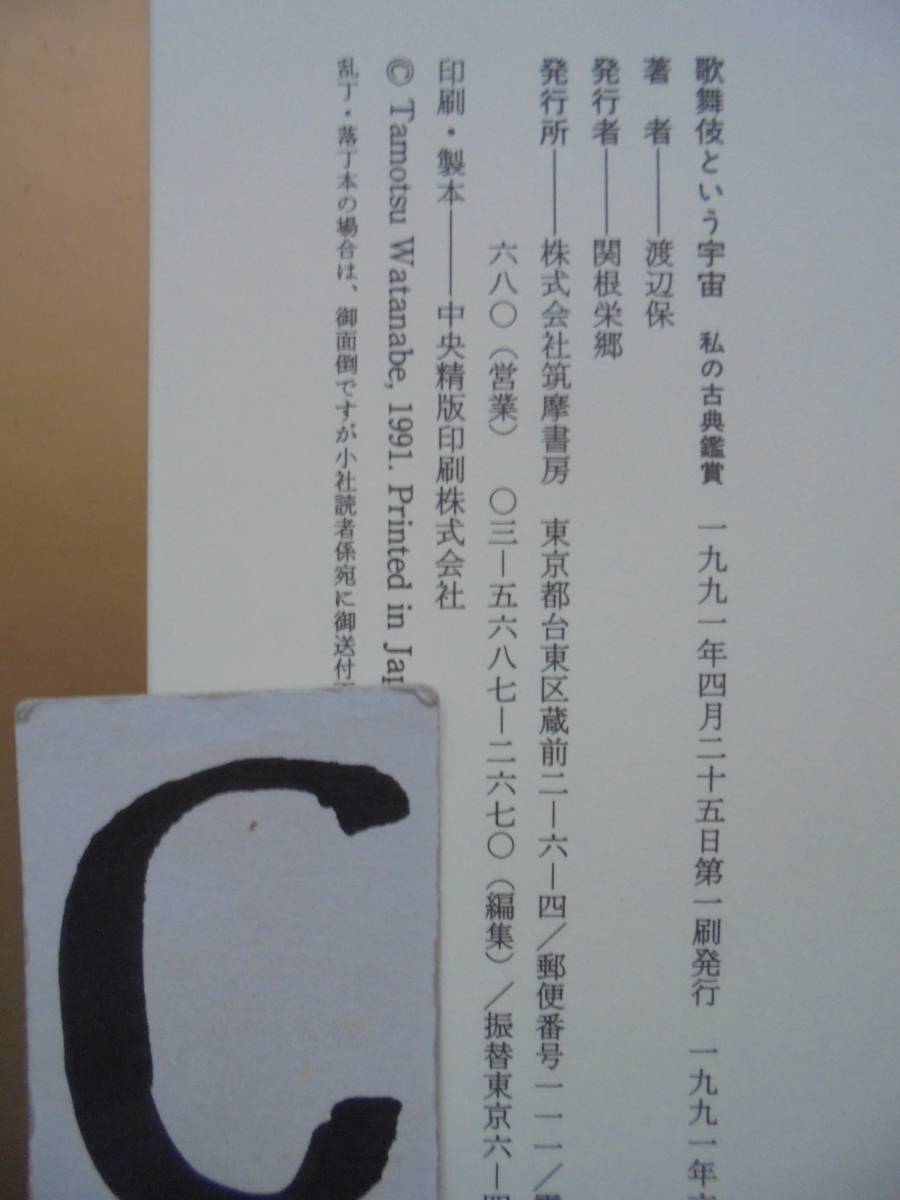 歌舞伎という宇宙　私の古典鑑賞　一九九一年四月二十五日第一刷発行　一九九一年
著　者――渡辺保
発行者――関根栄郷
発行所――株式会社筑摩書房　東京都台東区蔵前二―六―四／郵便番号一一一／
六八〇（営業）　〇三―五六八七―二六七〇（編集）／振替東京六―四
印刷・製本――中央精版印刷株式会社
© Tamotsu Watanabe, 1991. Printed in
乱丁・落丁本の場合は、御面倒ですが小社読者係宛に御送付
C